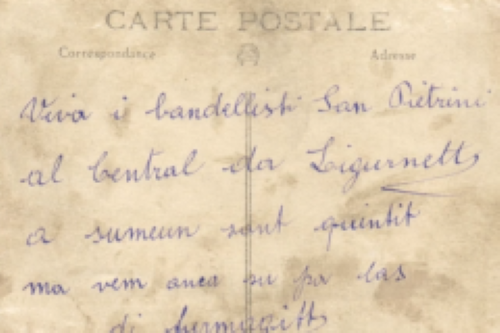 CARTE POSTALE
Correspondance Adresse
Viva i bandellisti San Pietrini
al Central da Ligurnett
a sumeun sont quintit
ma vem anca su pa las
di fermagitt